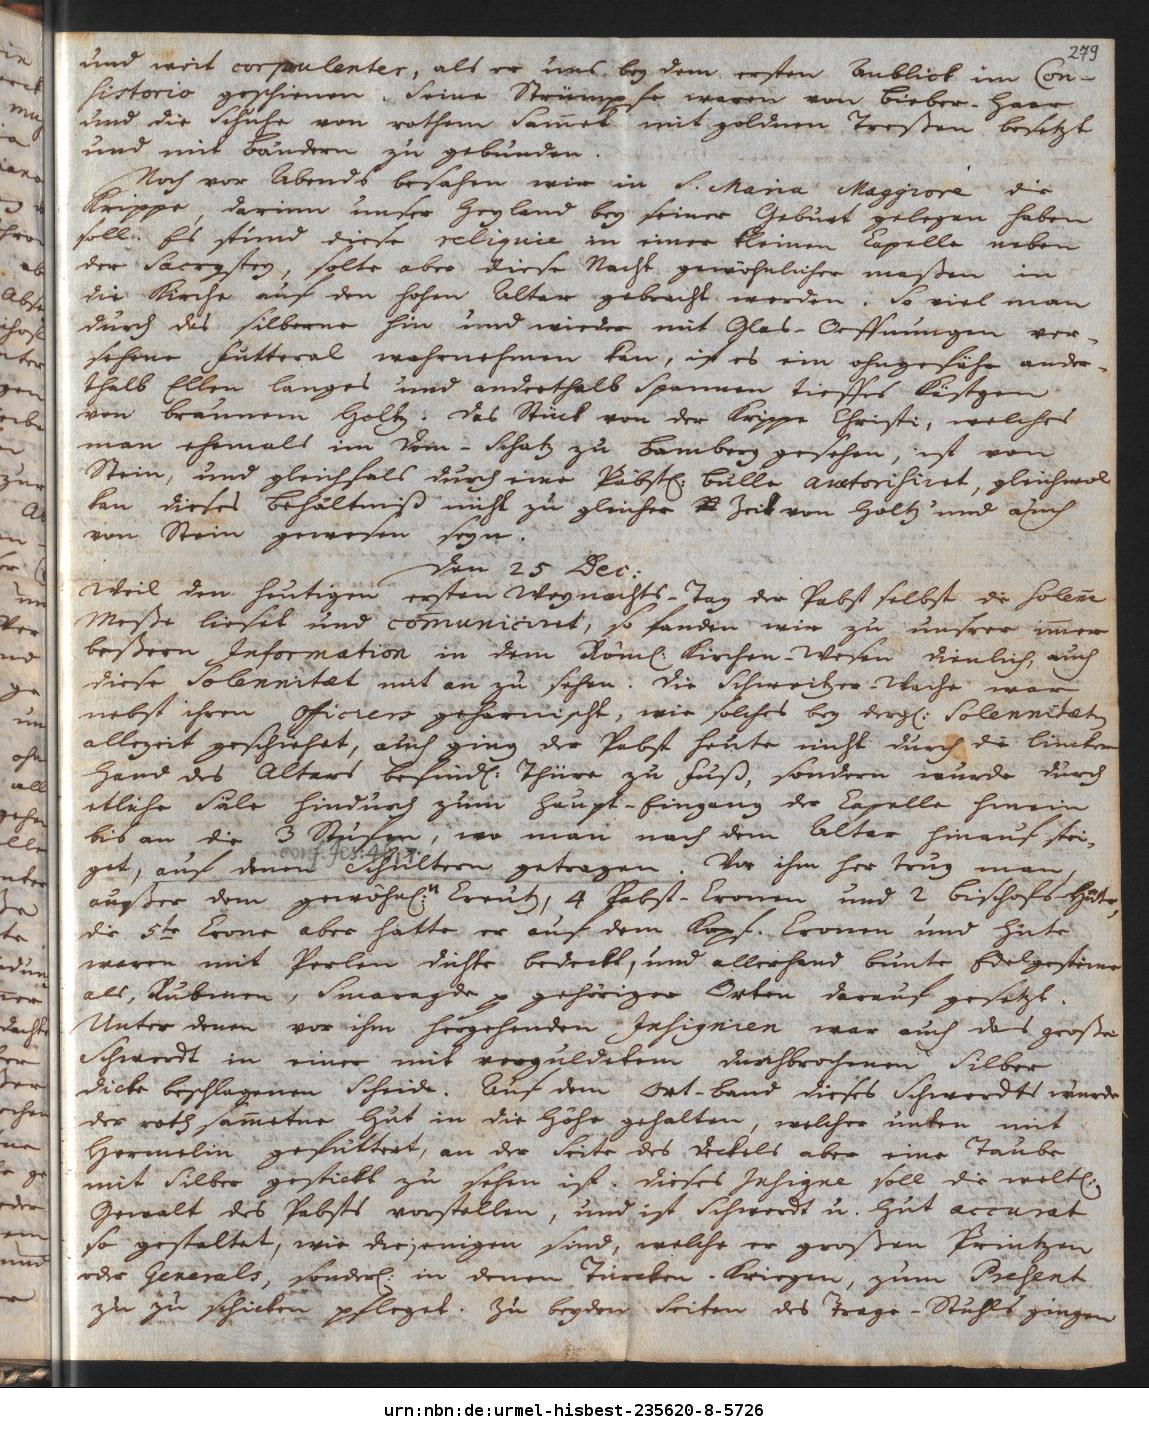 279
und weit corpulenter, als er uns bey dem ersten Anblick im Con-
sistorio geschienen. Seine Strümpfe waren von Bieber-Haar
und die Schuhe von rothem Sam̅et mit goldnen Treßen besetzt
und mit Bändern zu gebunden.
Noch vor Abends besahen wir in S. Maria Maggiore die
Krippe, darinn unser Heyland bey seiner Geburt gelegen haben
soll. Es stund diese reliquie in einer kleinen Capelle neben
der Sacrystey, solte aber diese Nacht gewöhnlicher maßen in
die Kirche auf den hohen Altar gebracht werden. So viel man
durch das silberne hin und wieder mit Glas-Oeffnungen ver-
sehene Futteral wahrnehmen kan, ist es ein ohngefähr ander-
thalb Ellen langes und anderthalb Spannen tieffes Kästgen
von braunem Holtz. Das Stück von der Krippe Christi, welches
man ehemals im Dom-Schatz zu Bamberg gesehen, ist von
Stein, und gleichfals durch eine Päbstl: Bulle autorisiret, gleichwol
kan dieses Behältniß nicht zu gleicher Zeit von Holtz und auch
von Stein gewesen seyn.
Den 25 Dec:
Weil den heutigen ersten Weynachts-Tag der Pabst selbst die solen̅e
Meße lieset und com̅uniciret, so fanden wir zu unsrer im̅er
beßern Information in dem Röml: Kirchen-Wesen dienlich, auch
diese Solennitæt mit an zu sehen. Die Schweitzer-Wache war
nebst ihren Officiers geharnischt, wie solches bey dergl: Solennitæten
allezeit geschiehet, auch ging der Pabst heute nicht durch die lincker
Hand des Altars befindl: Thüre zu Fuß, sondern wurde durch
etliche Säle hindurch zum Haupt-Eingang der Capelle hinein
bis an die 3 Stufen, wo man nach dem Altar hinauf stei-
get, auf denen Schultern getragen. Vor ihm her trug man,
außer dem gewöhnl:n Creutz, 4 Pabst-Cronen und 2 Bischofs-Hüte,
die 5te Crone aber hatte er auf dem Kopf. Cronen und Hüte
waren mit Perlen dichte bedeckt, und allerhand bunte Edelgesteine
als, Rubinen, Smaragde p gehöriger Orten darauf gesetzt.
Unter denen vor ihm hergehenden Insignien war auch das große
Schwerdt in einer mit verguldetem durchbrochenen Silber
dicke beschlagenen Scheide. Auf dem Ort-Band dieses Schwerdts wurde
der roth sam̅etne Hut in die Höhe gehalten, welcher unten mit
Hermelin gefüttert, an der Seite des Deckels aber eine Taube
mit Silber gestickt zu sehen ist. Dieses Insigne soll die weltl:
Gewalt des Pabsts vorstellen, und ist Schwerdt u. Hut accurat
so gestaltet, wie diejenigen sind, welche er großen Printzen
oder Generals, sonderl: in denen Türcken-Kriegen, zum Present
zu zu schicken pfleget. Zu beyden Seiten des Trage-Stuhls gingen
urn:nbn:de:urmel-hisbest-235620-8-5726